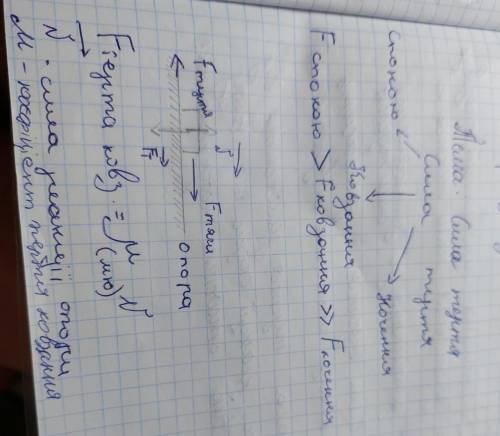 Тема. Сила тертя
Сила тертя
спокою
ковзання
кочення
F спокою > F ковзання >> F кочення
F тертя
N
F тяги
F
опора
F терта ковз. = μ N
(мю)
N - сила реакції опори
М - коефіцієнт тертя ковзання